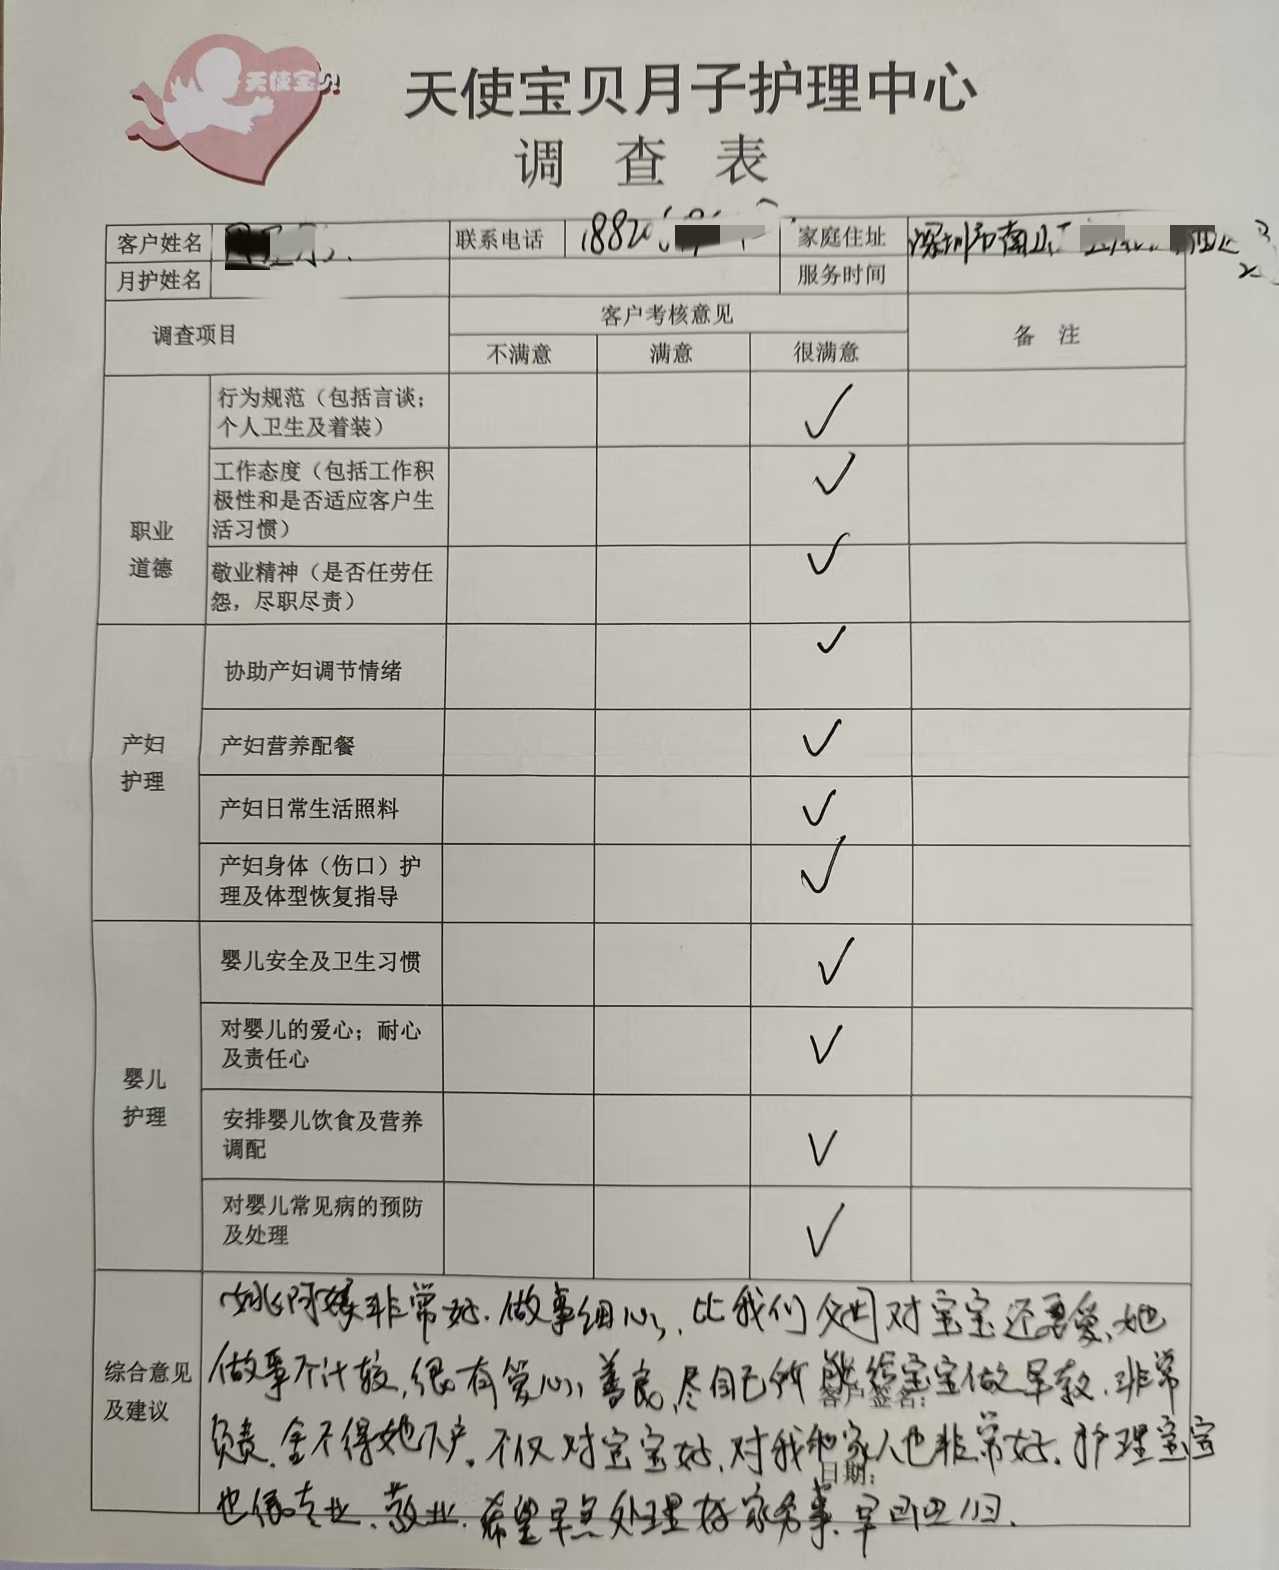 天使宝贝
天使宝贝月子护理中心
调 查 表
客户姓名 联系电话 18820 家庭住址 深圳市南山
月护姓名 服务时间
调查项目 客户考核意见 备 注
不满意 满意 很满意
职业道德
行为规范（包括言谈；
个人卫生及着装） ✓
工作态度（包括工作积
极性和是否适应客户生
活习惯） ✓
敬业精神（是否任劳任
怨，尽职尽责） ✓
产妇护理
协助产妇调节情绪 ✓
产妇营养配餐 ✓
产妇日常生活照料 ✓
产妇身体（伤口）护
理及体型恢复指导 ✓
婴儿护理
婴儿安全及卫生习惯 ✓
对婴儿的爱心；耐心
及责任心 ✓
安排婴儿饮食及营养
调配 ✓
对婴儿常见病的预防
及处理 ✓
综合意见及建议
姚阿姨非常好.做事细心,比我们 对宝宝还要爱,她
做事不计较,很有爱心,善良,尽自己所能给宝宝做早教.非常
客户签名：
负责.舍不得她下户。不仅对宝宝好,对我和家人也非常好.护理宝宝
日期：
也很专业.敬业.希望早点处理好家务事.早日回归.